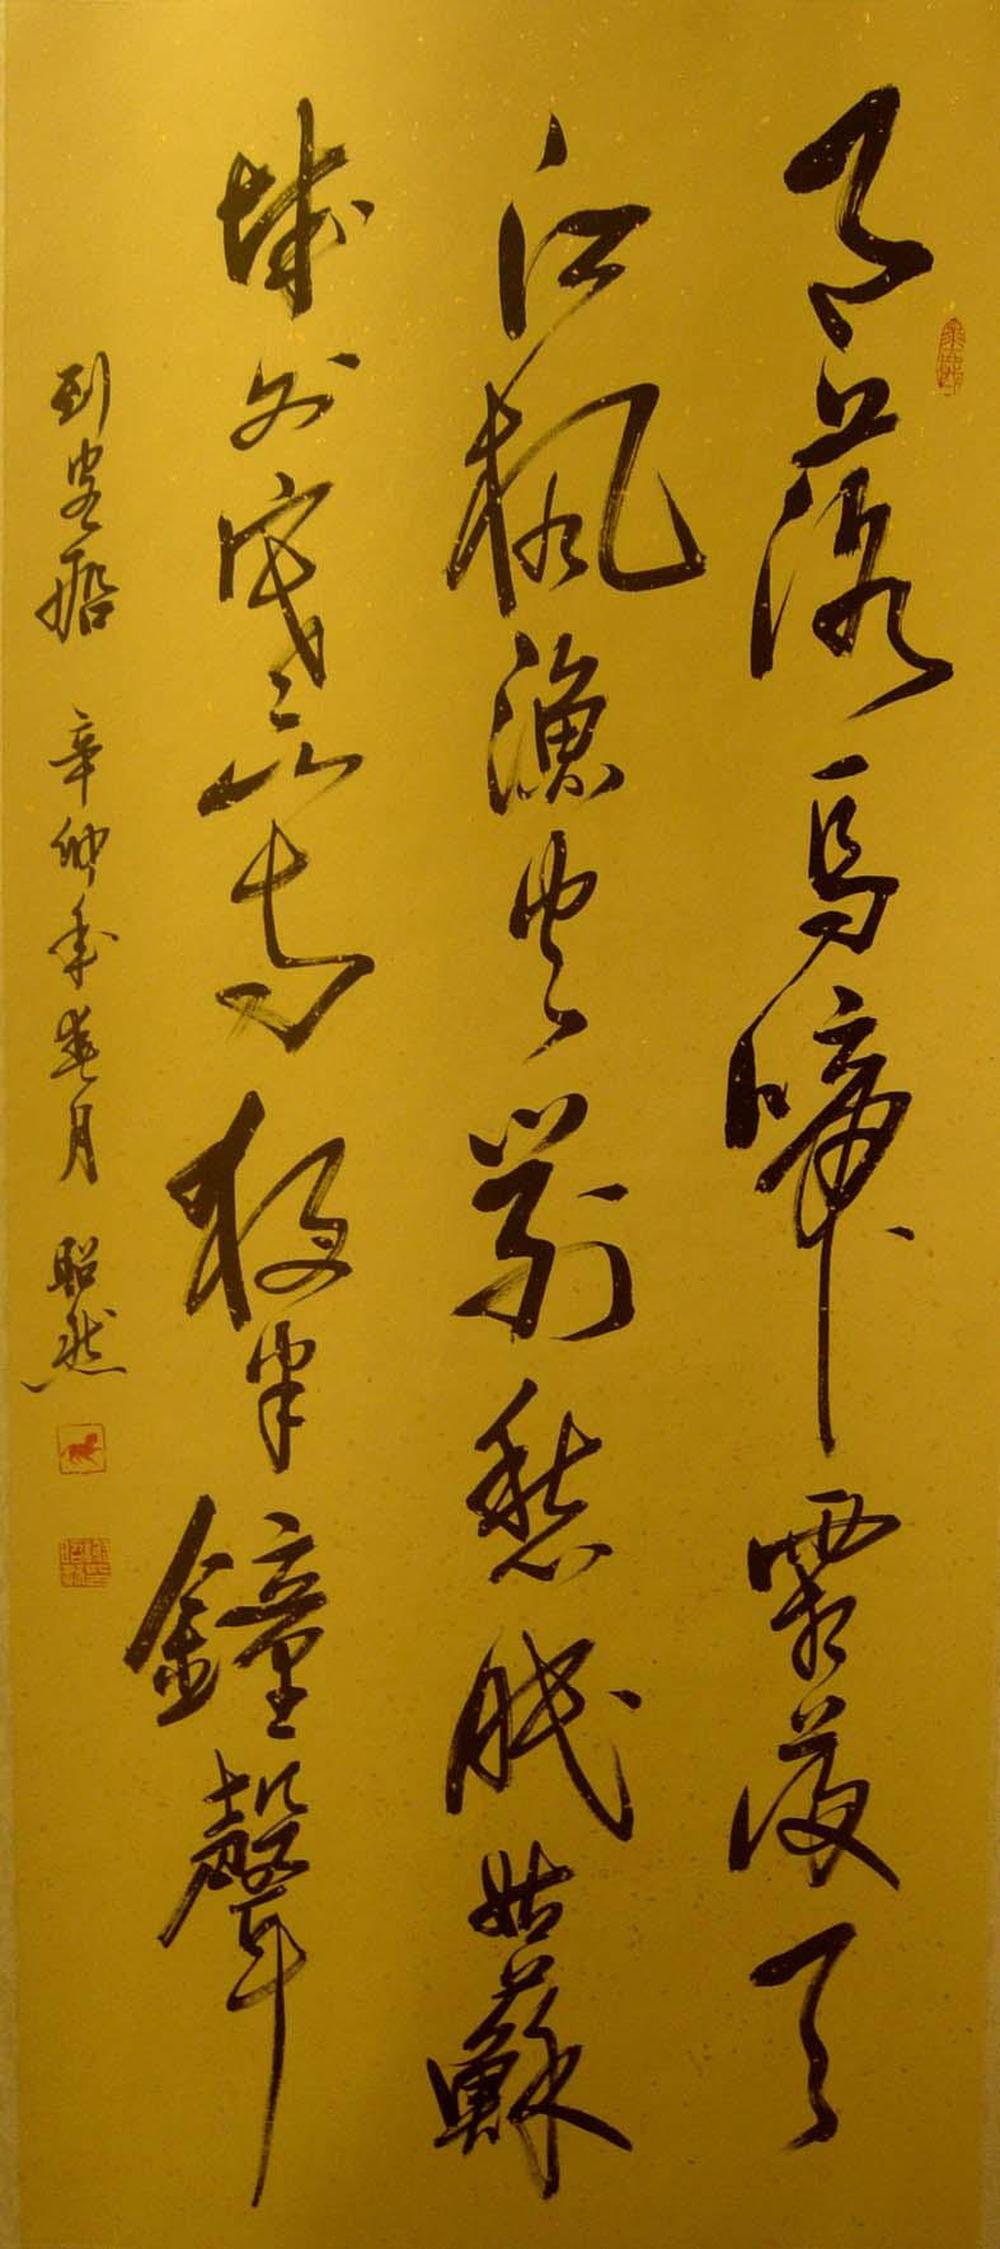 月落烏啼霜滿天
江楓漁火對愁眠姑蘇
城外寒山寺夜半鐘聲
到客船 辛卯年春月 昭然